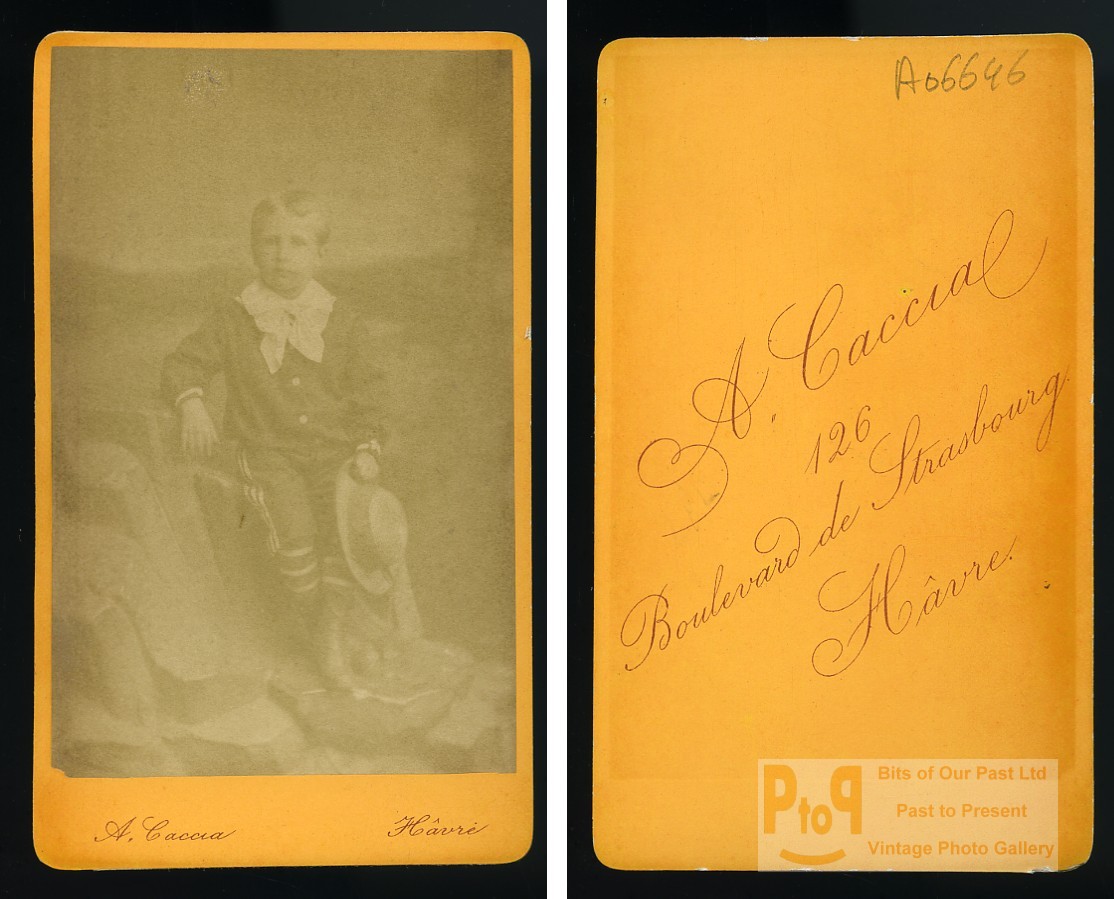 A. Caccia
Hâvre
A06646
A. Caccia
126
Boulevard de Strasbourg
Hâvre.
PtoP
Bits of Our Past Ltd
Past to Present
Vintage Photo Gallery